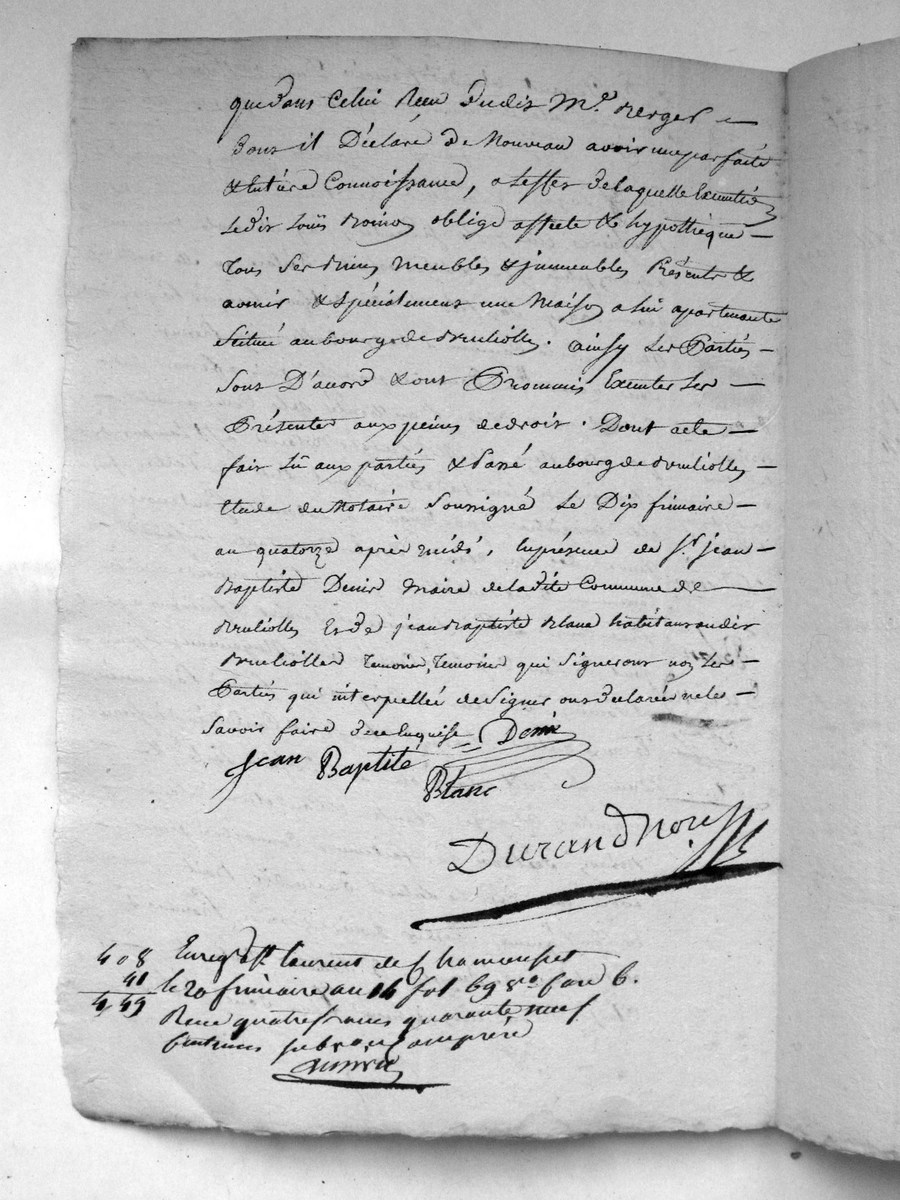 que dans celui Recu dudit Me. Berger —
dont il Déclare de Nouveau avoir une parfaite
& Entiere Connoissance, a l'effet de laquelle Exécution
Ledit Loüis oblige affecte & hypothèque —
tous Ses Biens meubles & jmmeubles Présents &
avenir & Spécialement une Maison a lui apartenante
Scituée au bourg de Brulliolles. ainsy Les Parties —
Sont D'acord & ont Promis Exécuter Les —
Présentes aux peines de droit. Dont acte —
fait lû aux parties & Passé au bourg de Brulliolles —
Etude du Notaire Soussigné Le Dix frimaire —
an quatorze après midi, En présence de Sr. jean —
Baptiste Denis Maire de la dite Commune de —
Brulliolles Et de jean Baptiste Blanc habitant audit
Brulliolles Temoins, Temoins qui Signeront non Les —
Parties qui interpellées de Signer ont Déclarées ne le —
Savoir faire de ce Enquise — Denis
Jean Baptite
Blanc
Durand Nore
408 Enreg. à St laurent de Chamousset
41 le 20 frimaire an 14 fol 69 vo. Case 6.
4,49 Recu quatre francs quarante neuf
Centimes subvon Comprise